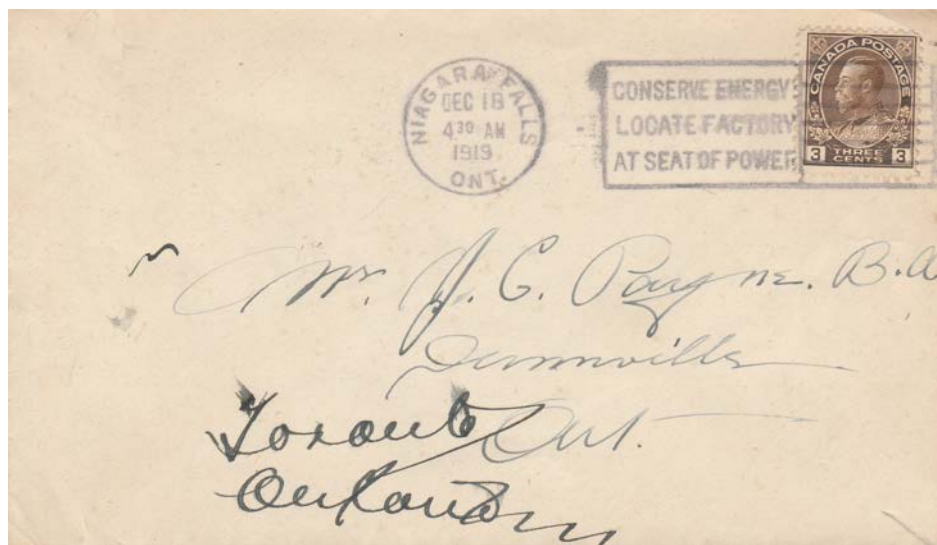 NIAGARA FALLS
DEC 18
4 30 AM
1919
ONT.
CONSERVE ENERGY
LOCATE FACTORY
AT SEAT OF POWER
CANADA POSTAGE
3 THREE CENTS 3
Mr. J. C. Payne. B.A
Dunnville
Ont.
Toronto
Ontario